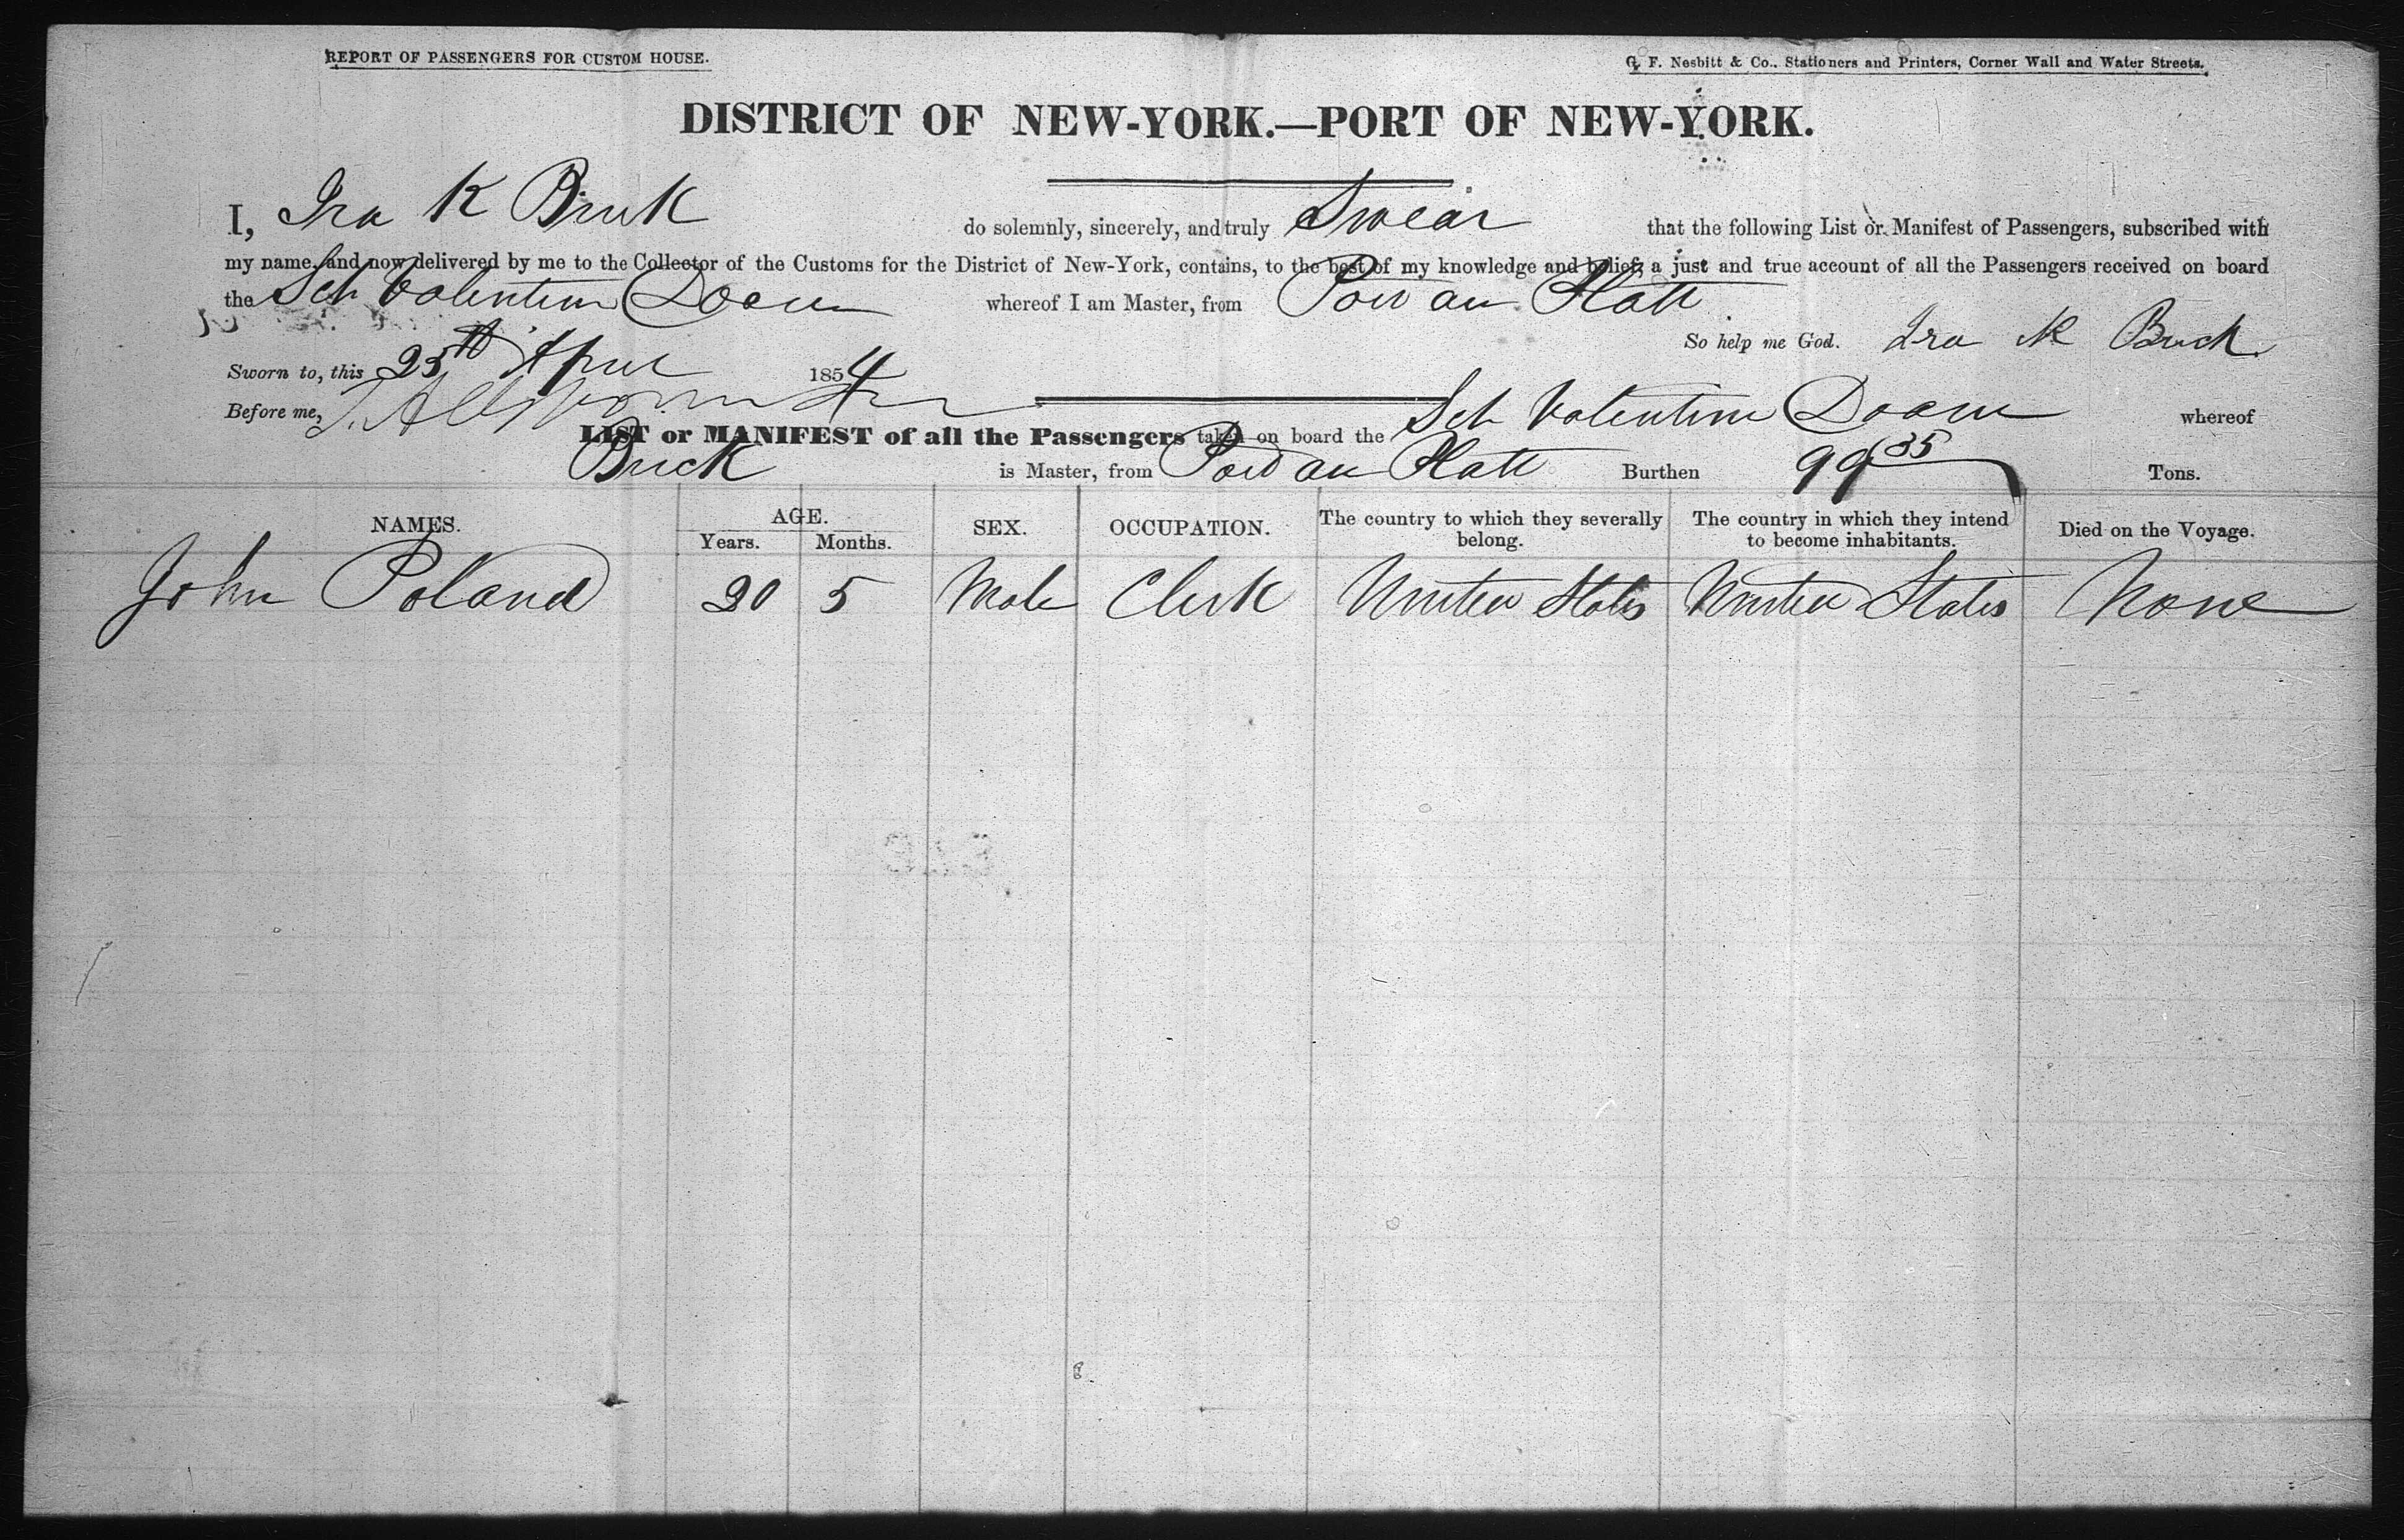 REPORT OF PASSENGERS FOR CUSTOM HOUSE.
G. F. Nesbitt & Co., Stationers and Printers, Corner Wall and Water Streets.
DISTRICT OF NEW-YORK.—PORT OF NEW-YORK.
I, Ira K Buck do solemnly, sincerely, and truly Swear that the following List or Manifest of Passengers, subscribed with
my name, and now delivered by me to the Collector of the Customs for the District of New-York, contains, to the best of my knowledge and belief, a just and true account of all the Passengers received on board
the Sch Valentine Doane whereof I am Master, from Port au Platt
So help me God. Ira K Buck
Sworn to, this 25th April 1854
Before me,
LIST or MANIFEST of all the Passengers taken on board the Sch Valentine Doane whereof
Buck is Master, from Port au Platt Burthen 99 35 Tons.
NAMES. AGE. Years. Months. SEX. OCCUPATION. The country to which they severally belong. The country in which they intend to become inhabitants. Died on the Voyage.
John Poland 20 5 Male Clerk United States United States None